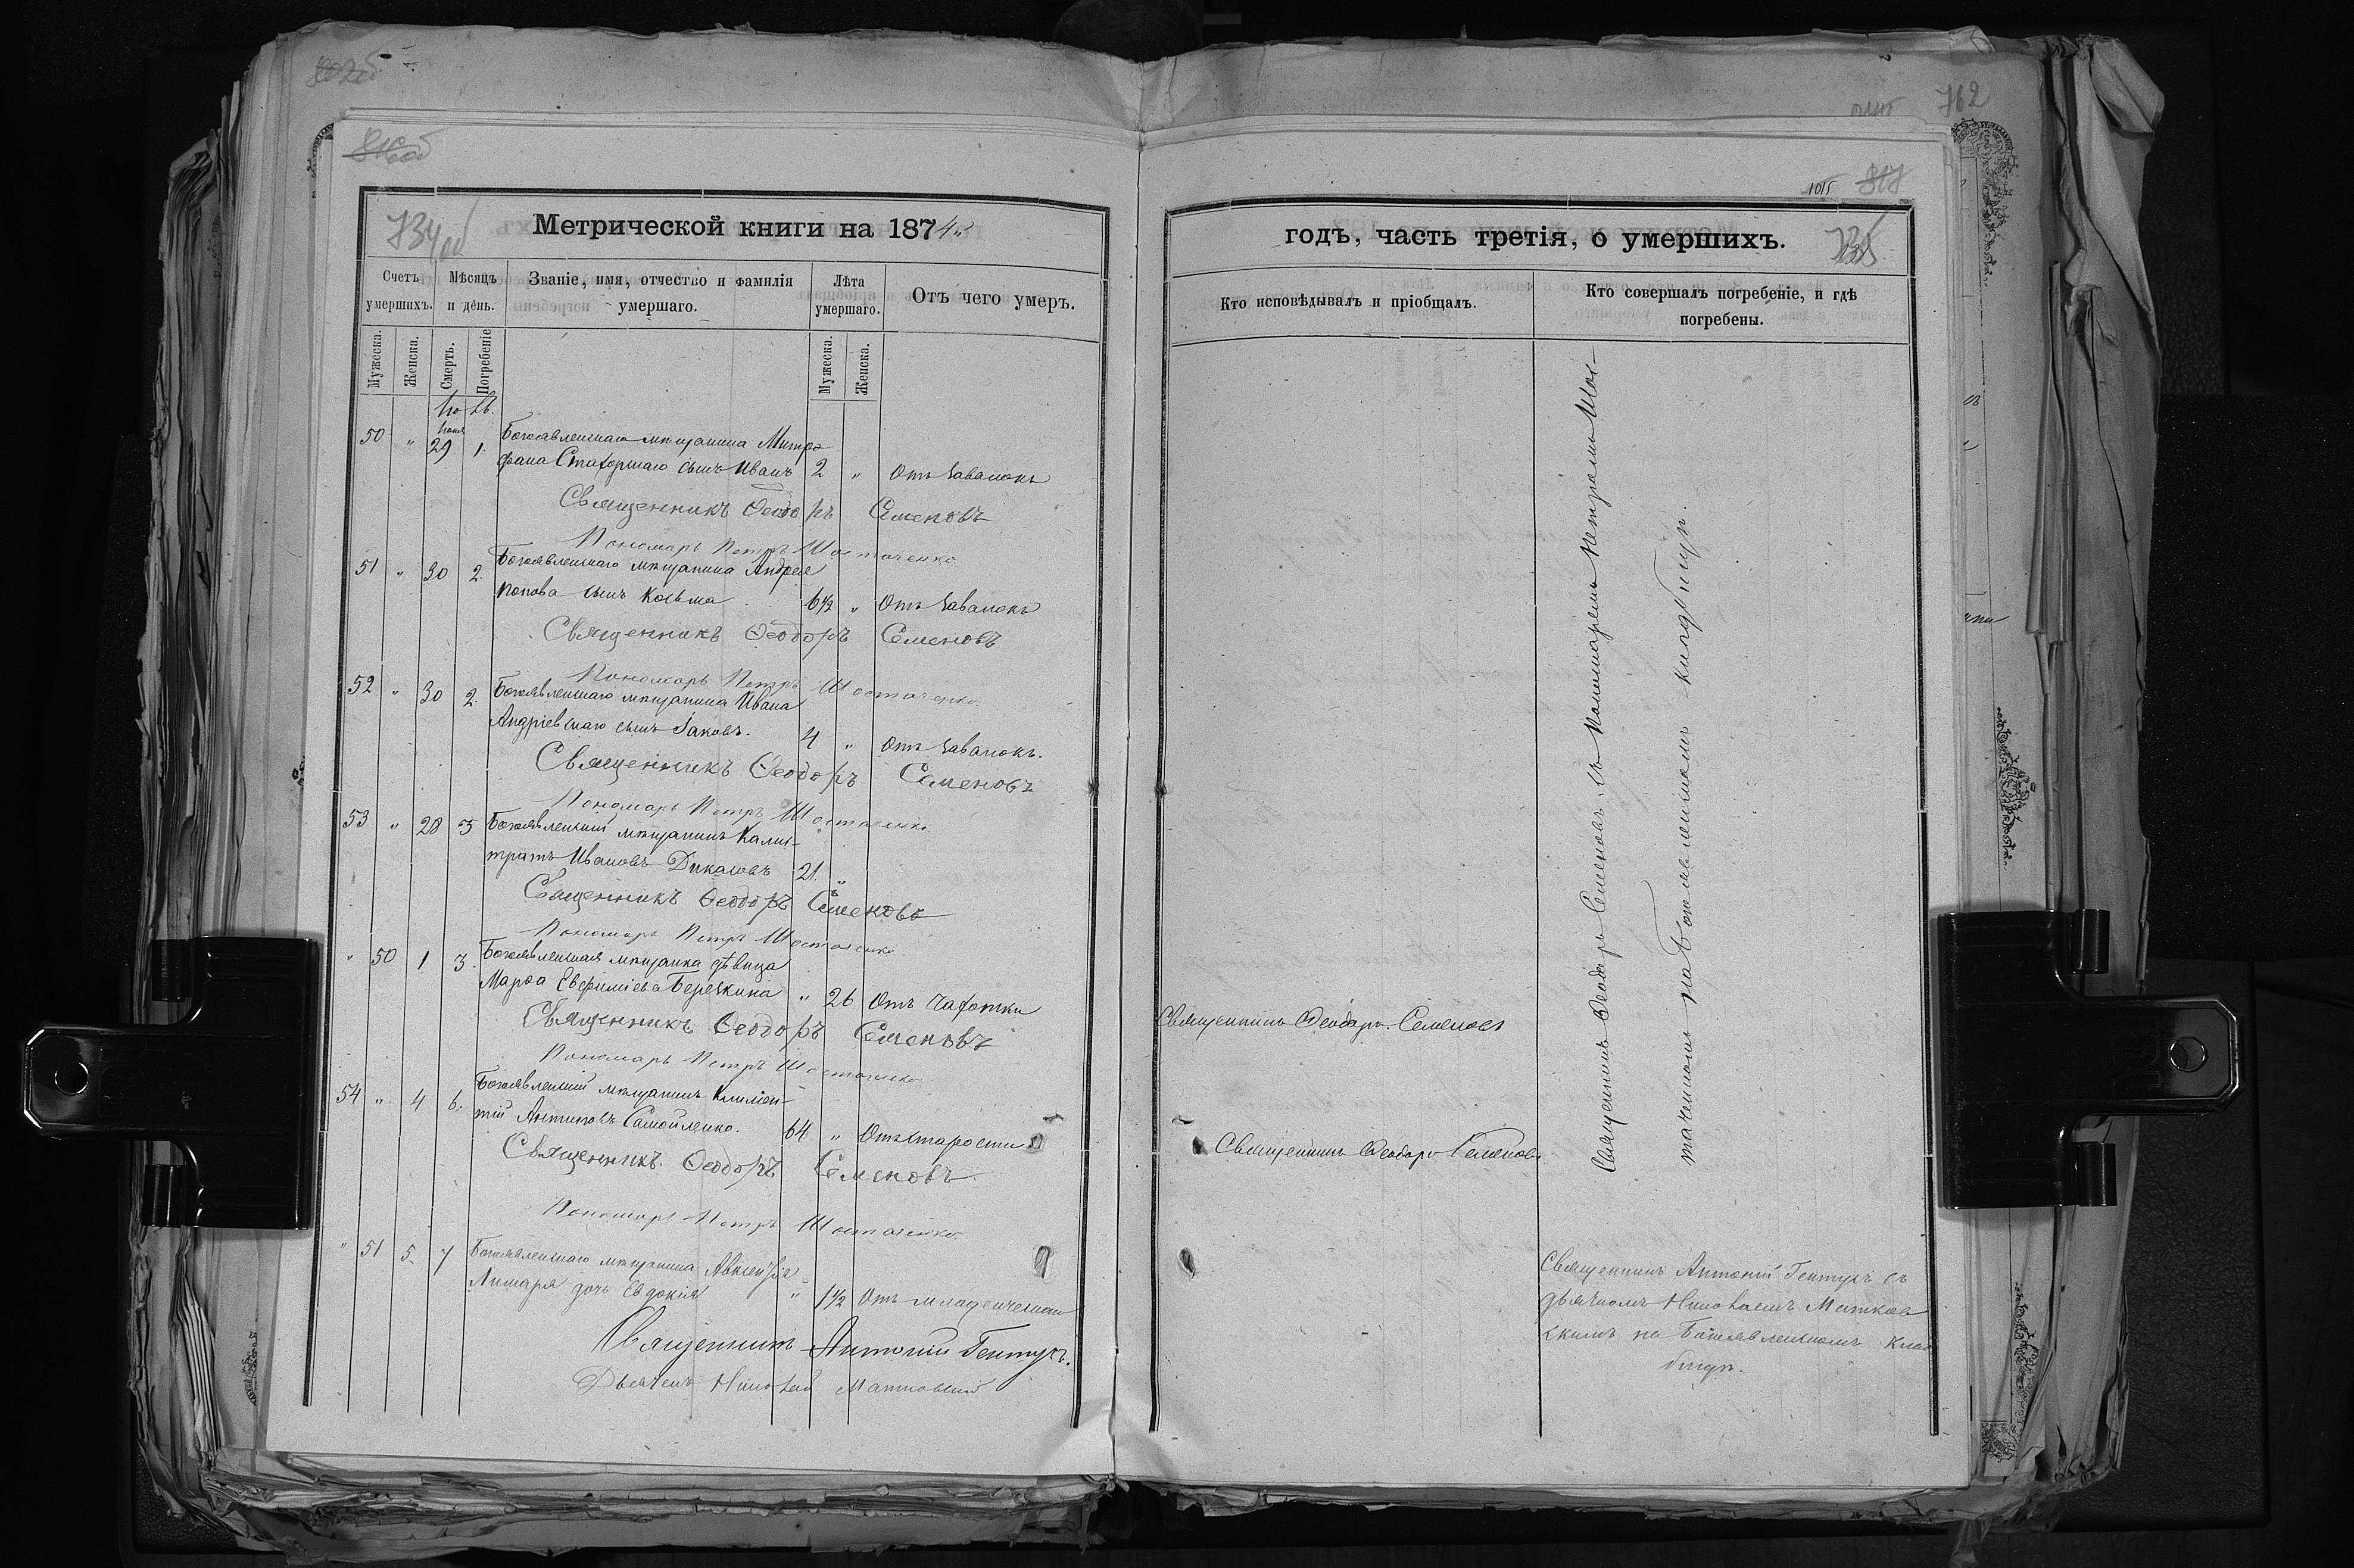 762
1015
734 об
735
Метрической книги на 1874й
Счетъ умершихъ.
Мѣсяцъ и день.
Званіе, имя, отчество и фамилія умершаго.
Лѣта умершаго.
Отъ чего умеръ.
Мужеска.
Женска.
Смерть.
Погребеніе
Мужеска.
Женска.
50 " 29 1. Богоявленскаго мѣщанина Митро
фана сынъ Иванъ 2 " Отъ
Священникъ Ѳеодоръ Семеновъ
Пономарь Петръ Шостаченко
51 " 30 2. Богоявленскаго мѣщанина Андрея
Попова сынъ Козьма 6½ " Отъ
Священникъ Ѳеодоръ Семеновъ
Пономарь Петръ Шостаченко
52 " 30 2. Богоявленскаго мѣщанина Ивана
Андріевскаго сынъ Іаковъ. 4 " Отъ
Священникъ Ѳеодоръ Семеновъ
Пономарь Петръ Шостаченко
53 " 28 3 Богоявленскій мѣщанинъ Калис-
тратъ Ивановъ 21. "
Священникъ Ѳеодоръ Семеновъ
Пономарь Петръ Шостаченко
" 50 1 3. Богоявленская мѣщанка дѣвица
Марѳа Евфиміева Березкина " 26 Отъ чахотки
Священникъ Ѳеодоръ Семеновъ
Пономарь Петръ Шостаченко
54 " 4 6. Богоявленскій мѣщанинъ Климен-
тій Антиповъ Самойленко. 64 " Отъ старости
Священникъ Ѳеодоръ Семеновъ
Пономарь Петръ Шостаченко
" 51 5. 7 Богоявленскаго мѣщанина Авксентія
Лимаря дочь Евдокія " 1½ Отъ младенческой
Священникъ Антоній Гентухъ.
Дьячекъ Николай
годъ, часть третія, о умершихъ.
Кто исповѣдывалъ и пріобщалъ.
Кто совершалъ погребеніе, и гдѣ
погребены.
Священникъ Ѳеодоръ Семеновъ
Священникъ Ѳеодоръ Семеновъ
Священникъ Ѳеодоръ Семеновъ съ пономаремъ Петромъ Шос-
таченкомъ на Богоявленскомъ кладбищѣ.
Священникъ Антоній Гентухъ съ
дьячкомъ Николаемъ
на Богоявленскомъ клад
бищѣ.